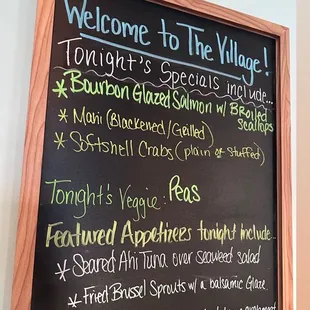 Welcome to The Village!
Tonight's Specials include...
* Bourbon Glazed Salmon w/ Broiled
Scallops
* Mahi (Blackened/Grilled)
* Softshell Crabs (plain or Stuffed)
Tonight's Veggie: Peas
Featured Appetizers tonight include...
* Seared Ahi Tuna over seaweed salad
* Fried Brussel Sprouts w/ a balsamic Glaze